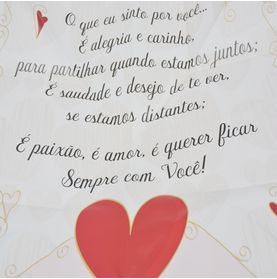 O que eu sinto por você...
É alegria e carinho,
para partilhar quando estamos juntos;
É saudade e desejo de te ver,
se estamos distantes;
É paixão, é amor, é querer ficar
Sempre com Você!